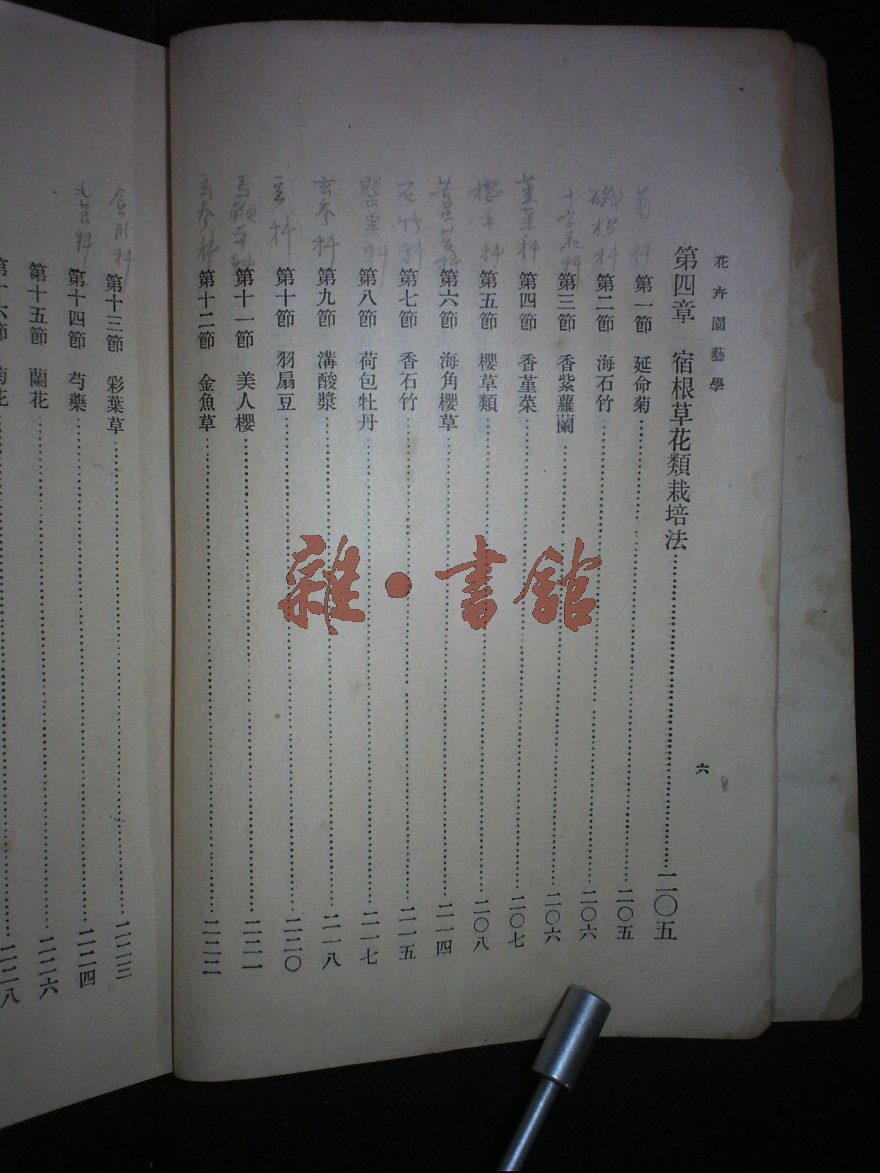 花卉園藝學
六
第四章 宿根草花類栽培法 二〇五
菊科
第一節 延命菊 二〇五
磯松科
第二節 海石竹 二〇六
十字花科
第三節 香紫蘿蘭 二〇六
堇菜科
第四節 香堇菜 二〇七
櫻草科
第五節 櫻草類 二〇八
苦苣苔科
第六節 海角櫻草 二一四
石竹科
第七節 香石竹 二一五
第八節 荷包牡丹 二一七
玄參科
第九節 溝酸漿 二一八
豆科
第十節 羽扇豆 二二〇
馬鞭草科
第十一節 美人櫻 二二一
玄參科
第十二節 金魚草 二二二
第十三節 彩葉草 二二三
毛茛科
第十四節 芍藥 二二四
第十五節 蘭花 二二六
第十六節 菊花 二二八
雜·書館